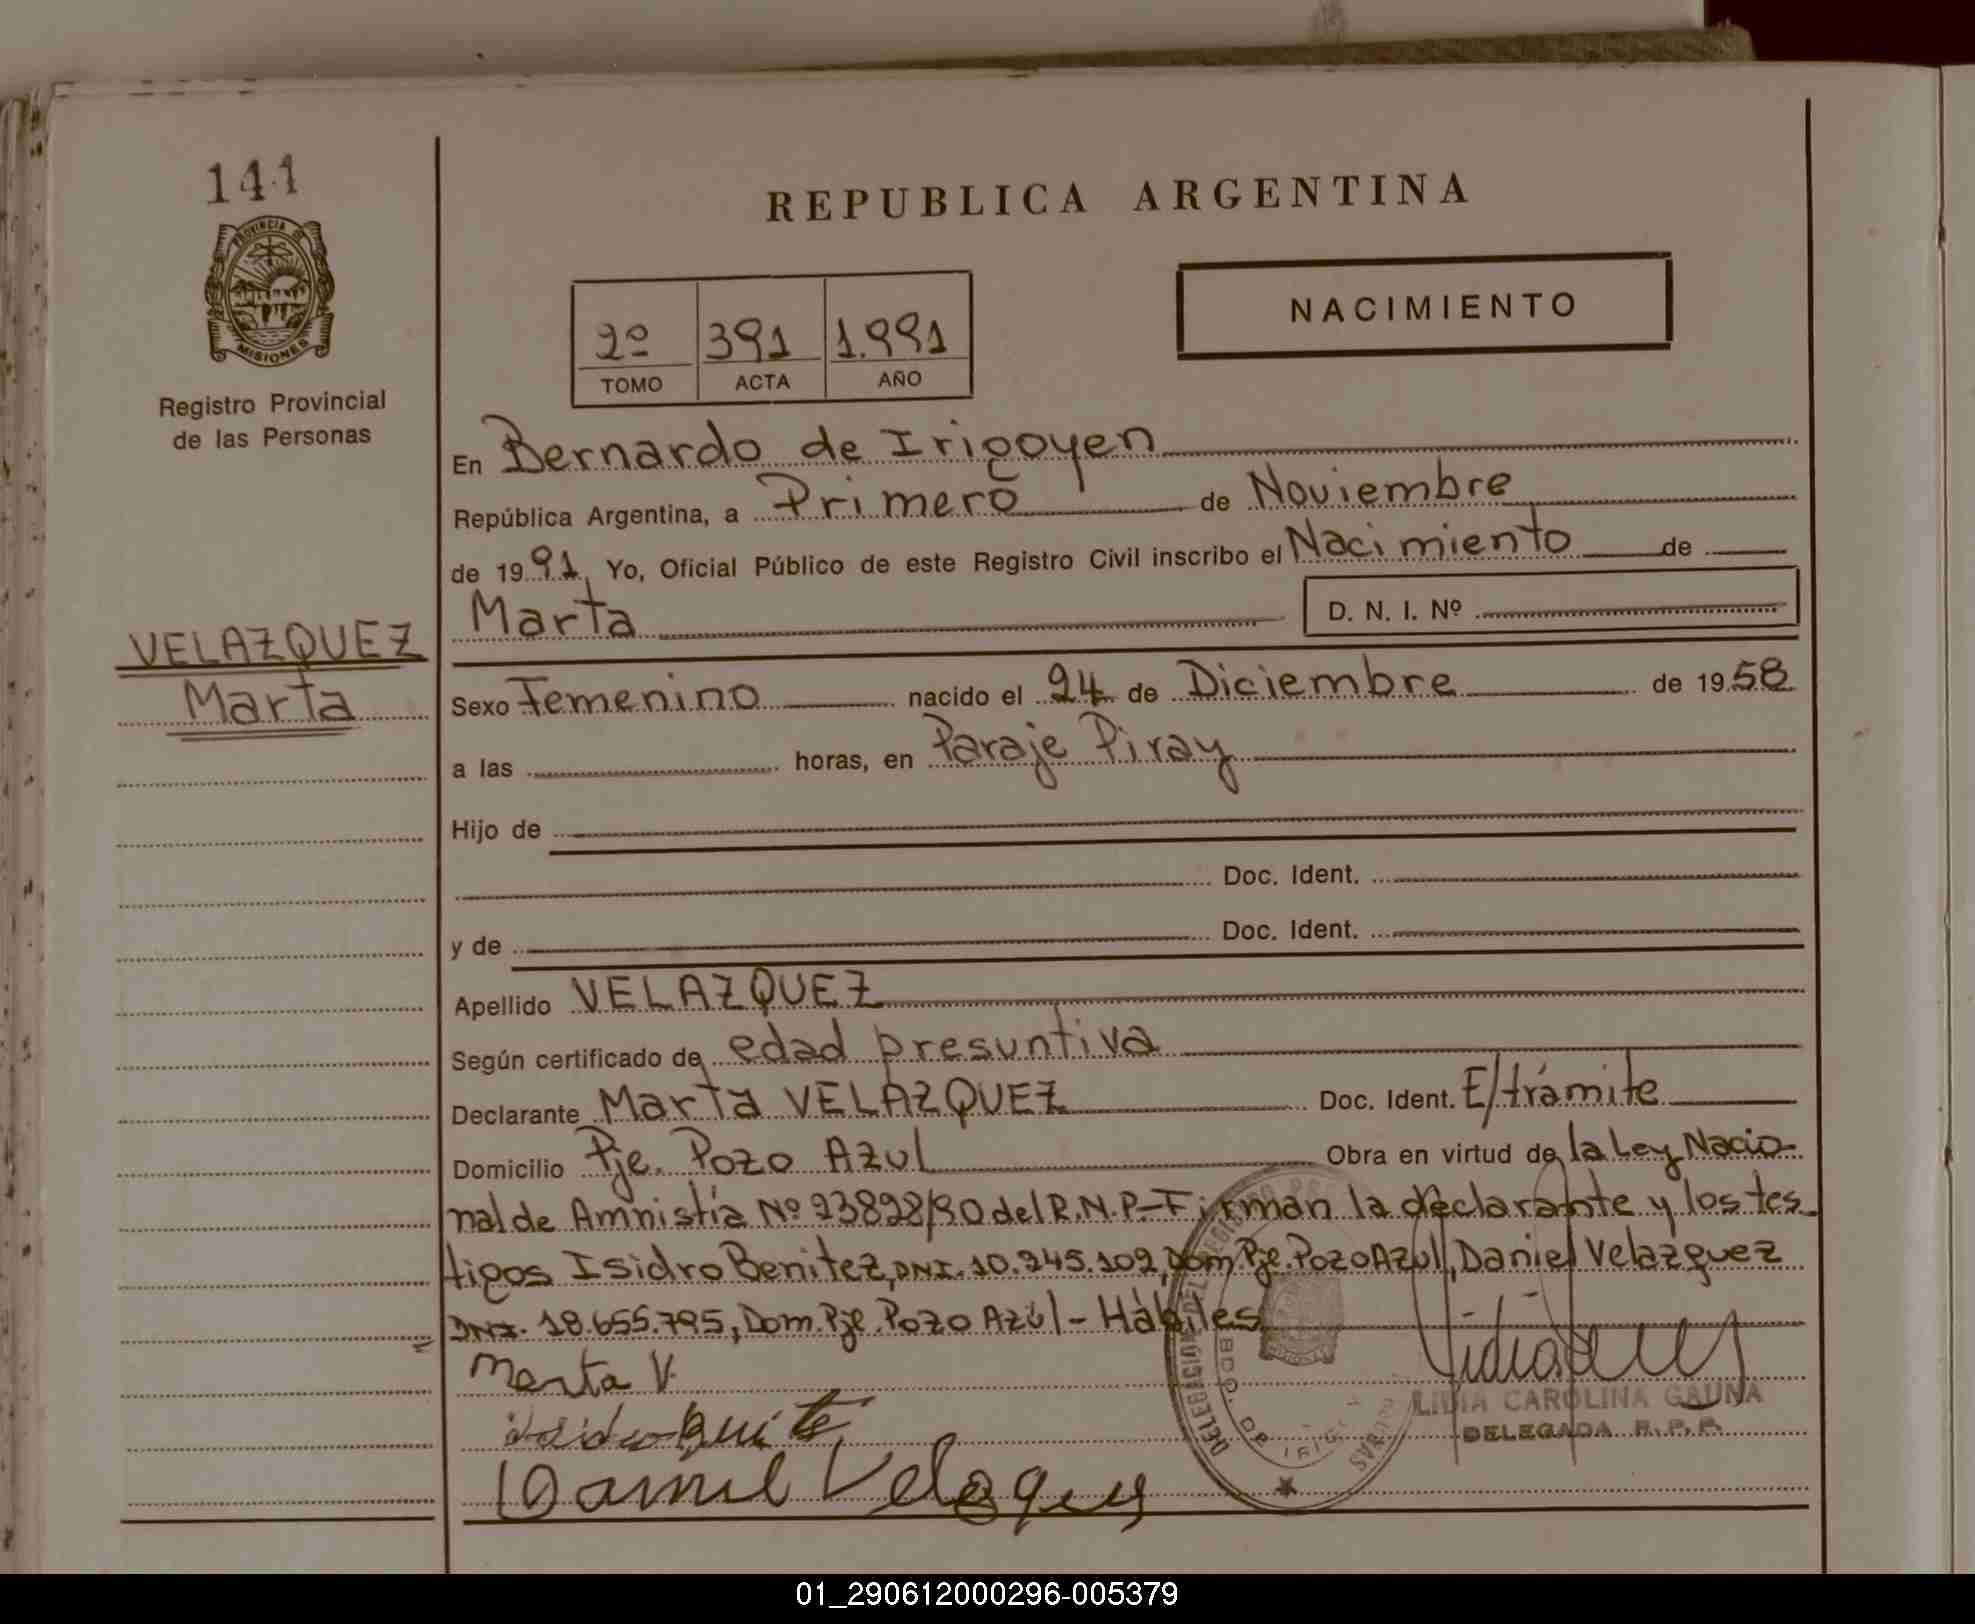 141
REPUBLICA ARGENTINA
PROVINCIA DE
MISIONES
Registro Provincial
de las Personas
NACIMIENTO
2º 391 1.991
TOMO ACTA AÑO
En Bernardo de Irigoyen
República Argentina, a Primero de Noviembre
de 1991 Yo, Oficial Público de este Registro Civil inscribo el Nacimiento de
Marta D. N. I. Nº
VELAZQUEZ
Marta
Sexo Femenino nacido el 24 de Diciembre de 1958
a las horas, en Paraje Piray
Hijo de
Doc. Ident.
y de Doc. Ident.
Apellido VELAZQUEZ
Según certificado de edad presuntiva
Declarante Marta VELAZQUEZ Doc. Ident. E/trámite
Domicilio Pje. Pozo Azul Obra en virtud de la Ley Nacio-
nal de Amnistía Nº 23828/90 del R.N.P.- Firman la declarante y los tes-
tigos Isidro Benitez, DNI. 10.245.102, Dom. Pje. Pozo Azul, Daniel Velazquez
DNI. 18.655.795, Dom. Pje. Pozo Azúl - Hábiles
Marta V.
Daniel Velazquez
LIDIA CAROLINA GAUNA
DELEGADA R. P. P.
01_290612000296-005379